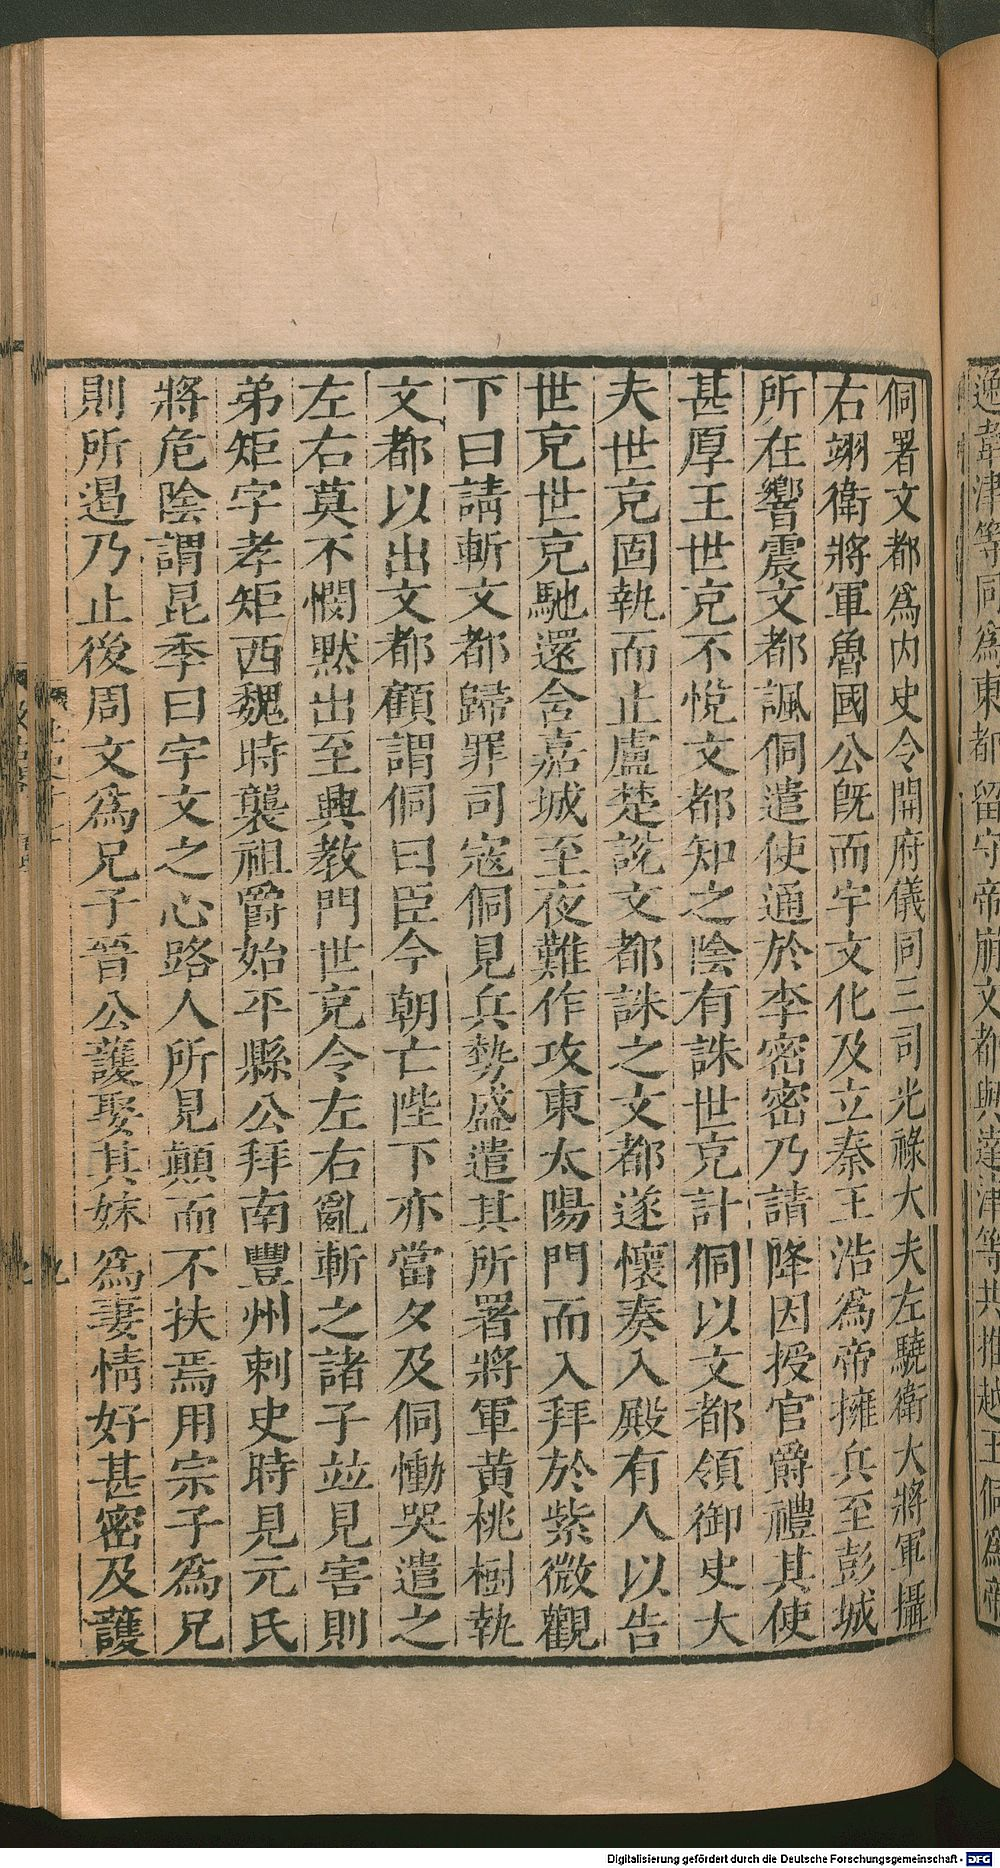 逸韋津等同爲東都留守帝崩文都與達津等共推越王侗爲帝
侗署文都爲内史令開府儀同三司光祿大夫左驍衛大將軍攝
右翊衛將軍魯國公旣而宇文化及立秦王浩爲帝擁兵至彭城
所在響震文都諷侗遣使通於李密密乃請降因授官爵禮其使
甚厚王世克不悅文都知之陰有誅世克計侗以文都領御史大
夫世克固執而止盧楚說文都誅之文都遂懷奏入殿有人以告
世克世克馳還含嘉城至夜難作攻東太陽門而入拜於紫微觀
下曰請斬文都歸罪司寇侗見兵勢盛遣其所署將軍黄桃樹執
文都以出文都顧謂侗曰臣今朝亡陛下亦當夕及侗慟哭遣之
左右莫不憫默出至興教門世克令左右亂斬之諸子並見害則
弟矩字孝矩西魏時襲祖爵始平縣公拜南豐州刺史時見元氏
將危陰謂昆季曰宇文之心路人所見顛而不扶焉用宗子爲兄
則所遏乃止後周文爲兄子晉公護娶其妹爲妻情好甚密及護
Digitalisierung gefördert durch die Deutsche Forschungsgemeinschaft - DFG